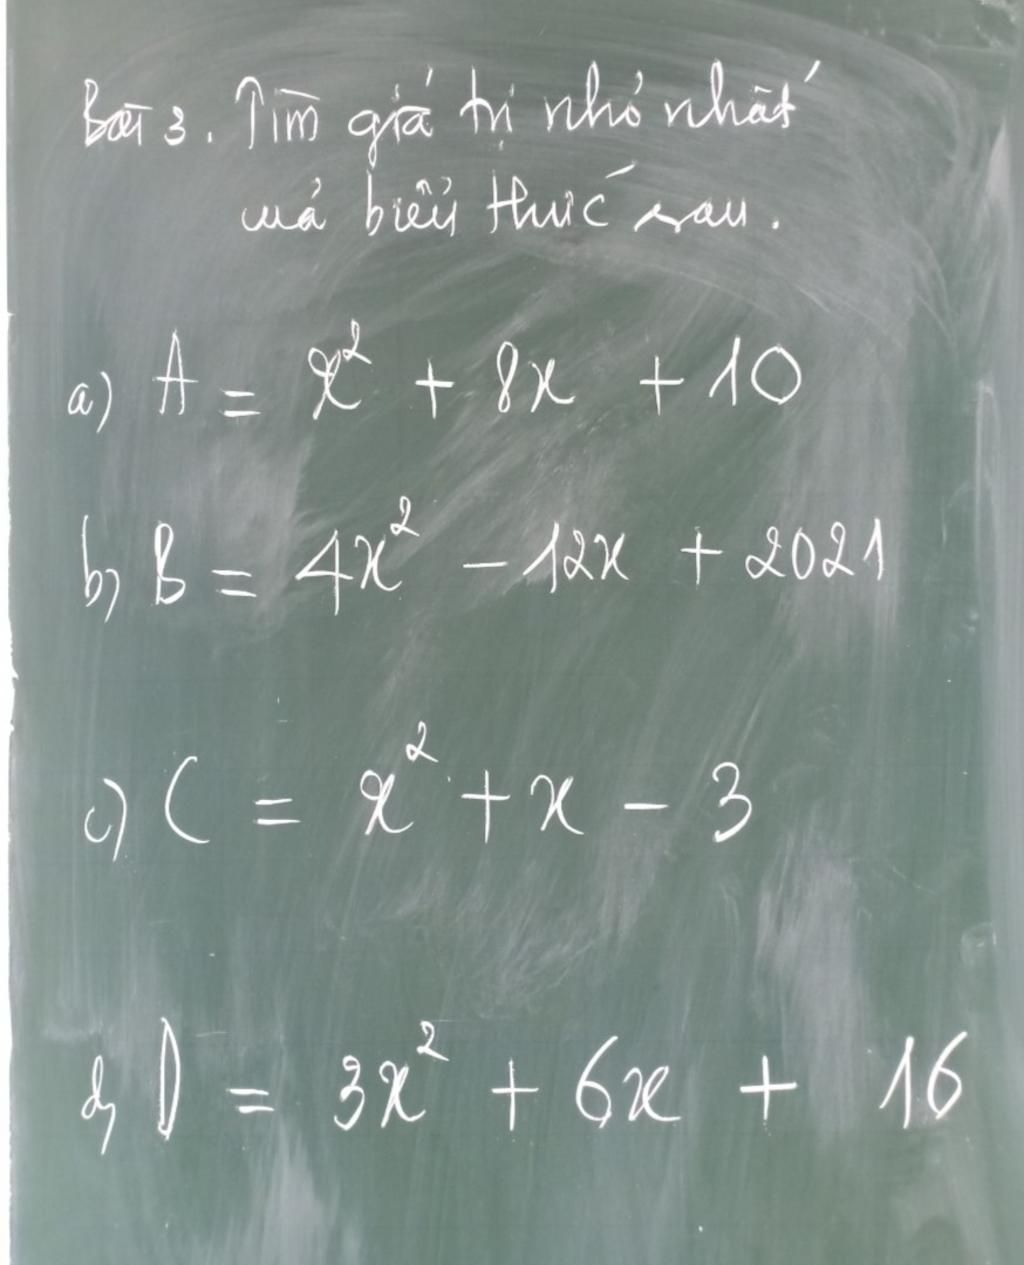 Bài 3. Tìm giá trị nhỏ nhất
của biểu thức sau.
a) A = x² + 8x + 10
b) B = 4x² - 12x + 2021
c) C = x² + x - 3
d) D = 3x² + 6x + 16